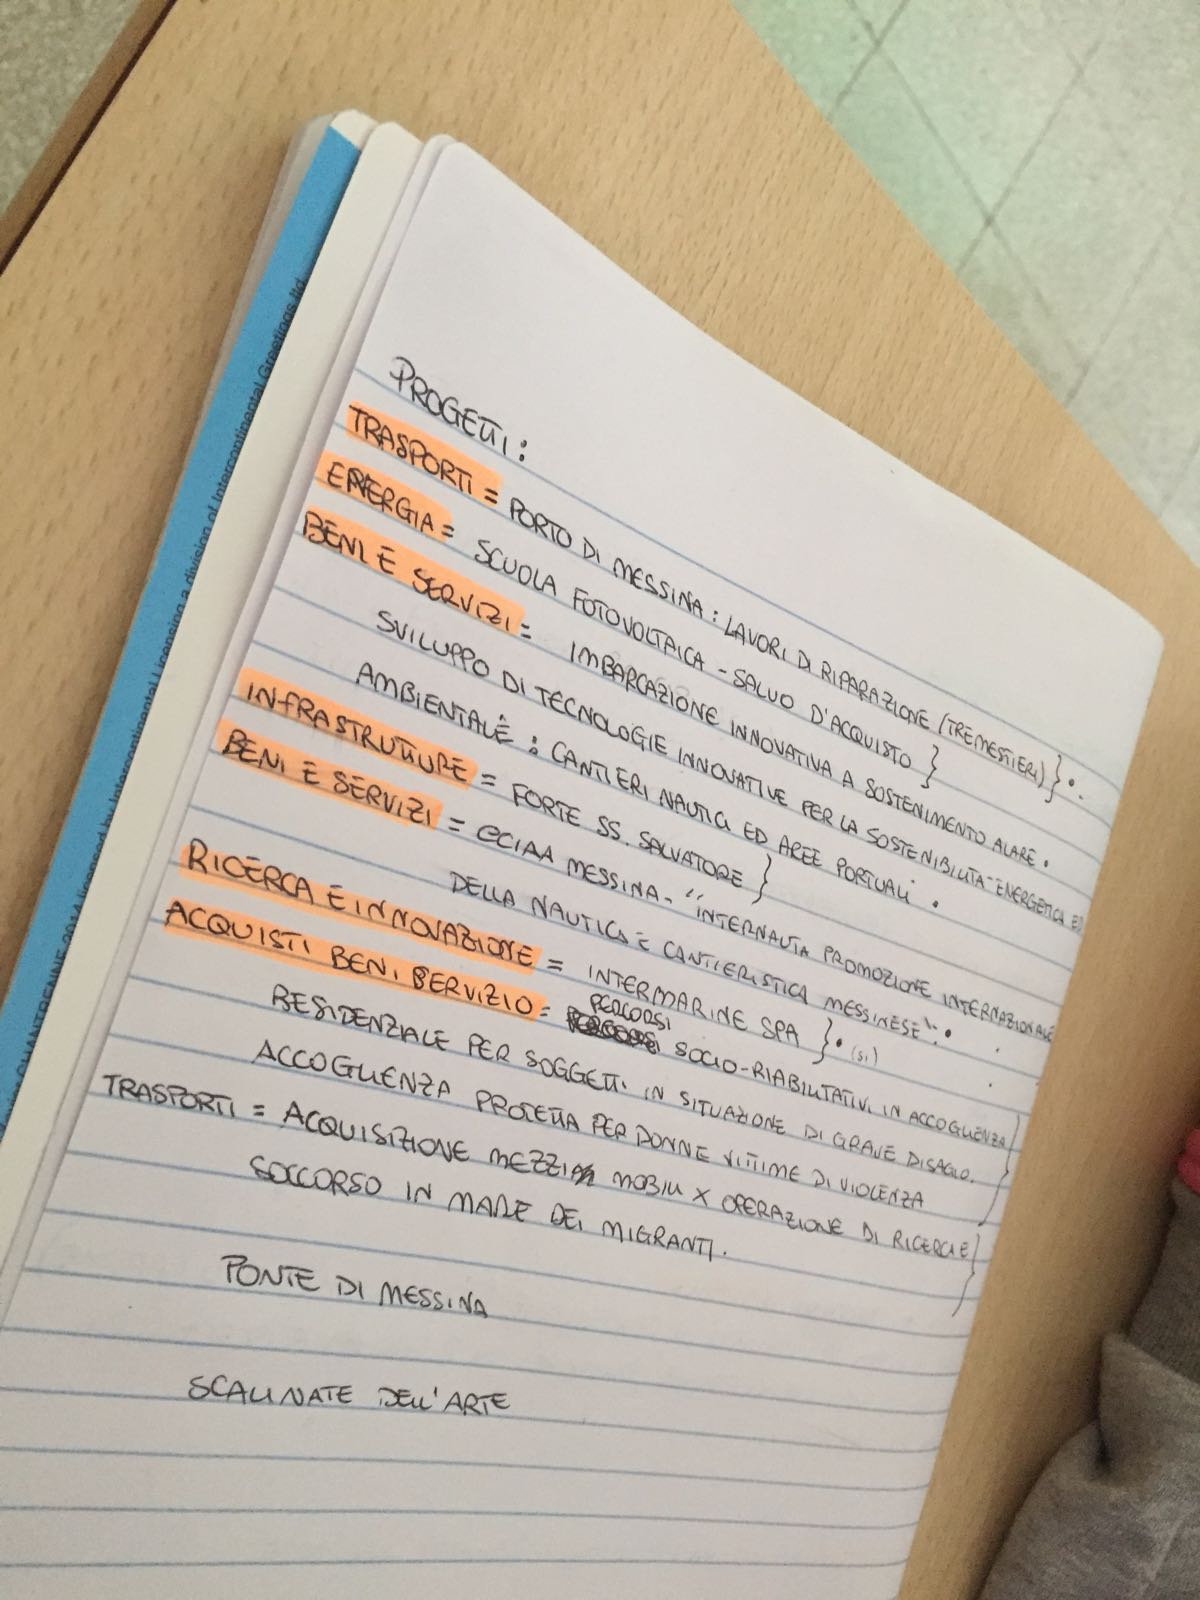 PROGETTI:
TRASPORTI = PORTO DI MESSINA: LAVORI DI RIPARAZIONE (TREMESTIERI) } •
ENERGIA = SCUOLA FOTOVOLTAICA - SALVO D'ACQUISTO }
BENI E SERVIZI = IMBARCAZIONE INNOVATIVA A SOSTENIMENTO ALARE •
SVILUPPO DI TECNOLOGIE INNOVATIVE PER LA SOSTENIBILITA' ENERGETICA ED
AMBIENTALE: CANTIERI NAUTICI ED AREE PORTUALI •
INFRASTRUTTURE = FORTE SS. SALVATORE }
BENI E SERVIZI = CCIAA MESSINA - "INTERNAUTA PROMOZIONE INTERNAZIONALE
DELLA NAUTICA E CANTIERISTICA MESSINESE" •
RICERCA E INNOVAZIONE = INTERMARINE SPA } • (SI)
ACQUISTI BENI SERVIZIO = PERCORSI SOCIO-RIABILITATIVI IN ACCOGLIENZA
RESIDENZIALE PER SOGGETTI IN SITUAZIONE DI GRAVE DISAGIO.
ACCOGLIENZA PROTETTA PER DONNE VITTIME DI VIOLENZA
TRASPORTI = ACQUISIZIONE MEZZI MOBILI X OPERAZIONE DI RICERCA E
SOCCORSO IN MARE DEI MIGRANTI.
PONTE DI MESSINA
SCALINATE DELL'ARTE
licensed by Intercontinental Licensing a division of Intercontinental Greetings ltd.